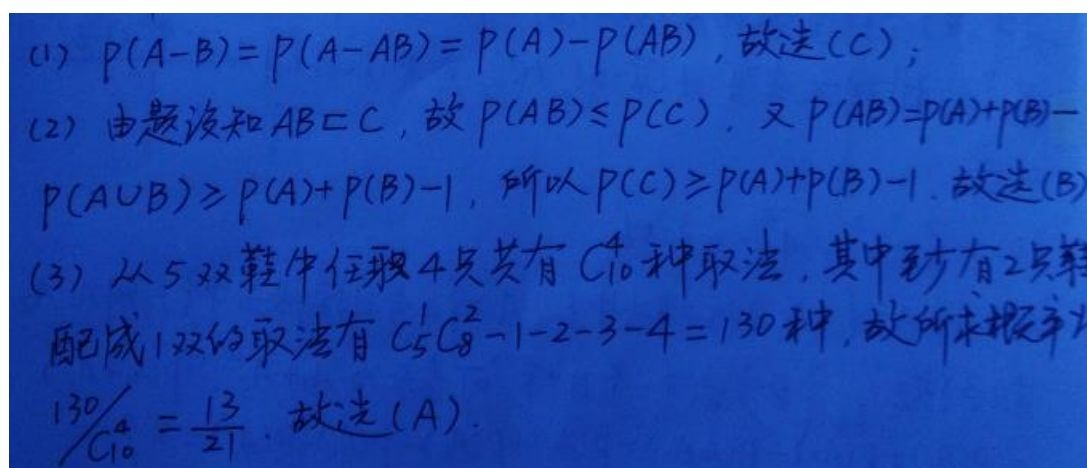 (1) P(A-B)=P(A-AB)=P(A)-P(AB),故选(C);
(2) 由题设知AB⊂C,故P(AB)≤P(C). 又P(AB)=P(A)+P(B)-
P(A∪B)≥P(A)+P(B)-1, 所以P(C)≥P(A)+P(B)-1.故选(B)
(3) 从5双鞋中任取4只共有C₁₀⁴种取法,其中至少有2只鞋
配成1双的取法有C₅¹C₈²-1-2-3-4=130种,故所求概率为
130/C₁₀⁴=13/21.故选(A).